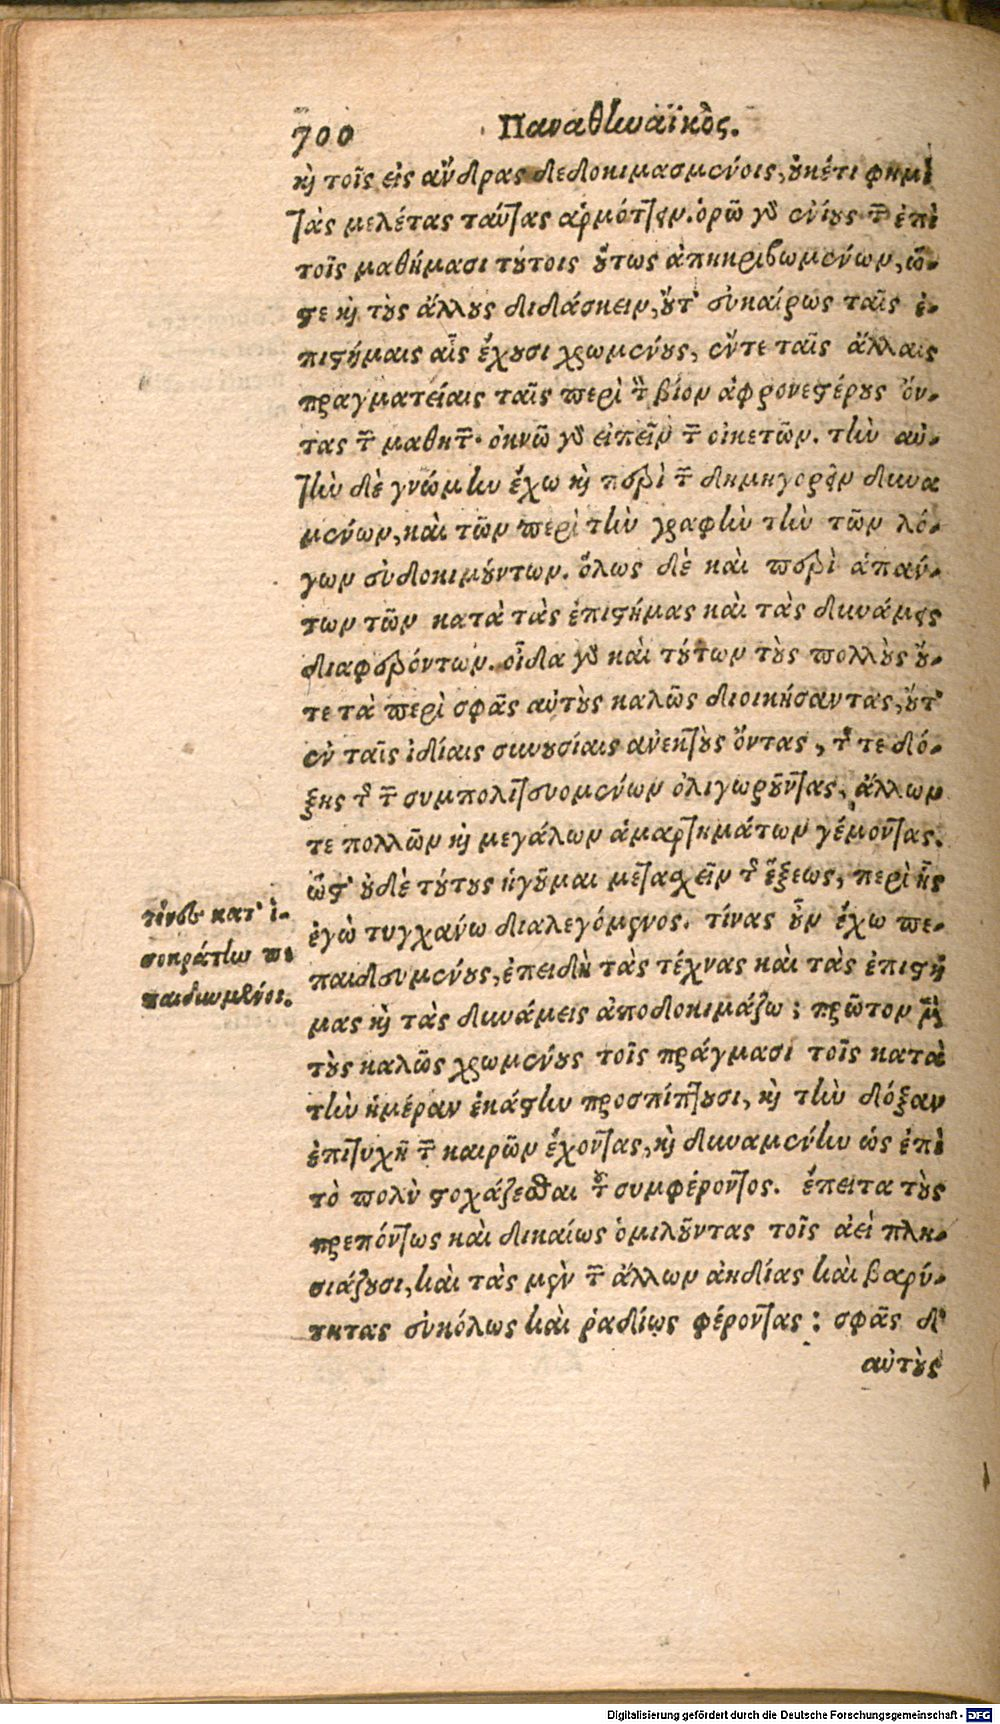 700 Παναθηναϊκὸς.
καὶ τοῖς εἰς ἄνδρας δεδοκιμασμένοις, οὐκέτι φημὶ
τὰς μελέτας ταύτας ἁρμόττειν. ὁρῶ γὰρ ἐνίους τῶν ἐπὶ
τοῖς μαθήμασι τούτοις οὕτως ἀπηκριβωμένων, ὥ-
στε καὶ τοὺς ἄλλους διδάσκειν, οὔτ' εὐκαίρως ταῖς ἐ-
πιστήμαις αἷς ἔχουσι χρωμένους, ἔν τε ταῖς ἄλλαις
πραγματείαις ταῖς περὶ τὸν βίον ἀφρονεστέρους ὄν-
τας τῶν μαθητῶν· ὀκνῶ γὰρ εἰπεῖν τῶν οἰκετῶν. τὴν αὐ-
τὴν δὲ γνώμην ἔχω καὶ περὶ τῶν δημηγορεῖν δυνα
μένων, καὶ τῶν περὶ τὴν γραφὴν τὴν τῶν λό-
γων εὐδοκιμούντων. ὅλως δὲ καὶ περὶ ἁπάν-
των τῶν κατὰ τὰς ἐπιστήμας καὶ τὰς δυνάμεις
διαφερόντων. οἶδα γὰρ καὶ τούτων τοὺς πολλοὺς οὔ-
τε τὰ περὶ σφᾶς αὐτοὺς καλῶς διοικήσαντας, οὔτ'
ἐν ταῖς ἰδίαις συνουσίαις ἀνεκτοὺς ὄντας, τῆς τε δό-
ξης τῆς τῶν συμπολιτευομένων ὀλιγωροῦντας, ἄλλων
τε πολλῶν καὶ μεγάλων ἁμαρτημάτων γέμοντας.
ὥστ' οὐδὲ τούτους ἡγοῦμαι μετασχεῖν τῆς ἕξεως, περὶ ἧς
ἐγὼ τυγχάνω διαλεγόμενος. τίνας οὖν ἔχω πε-
παιδευμένους, ἐπειδὴ τὰς τέχνας καὶ τὰς ἐπιστή
μας καὶ τὰς δυνάμεις ἀποδοκιμάζω; πρῶτον μὲν
τοὺς καλῶς χρωμένους τοῖς πράγμασι τοῖς κατὰ
τὴν ἡμέραν ἑκάστην προσπίπτουσι, καὶ τὴν δόξαν
ἐπιτυχῆ τῶν καιρῶν ἔχοντας, καὶ δυναμένην ὡς ἐπὶ
τὸ πολὺ στοχάζεσθαι τοῦ συμφέροντος. ἔπειτα τοὺς
πρεπόντως καὶ δικαίως ὁμιλοῦντας τοῖς ἀεὶ πλη-
σιάζουσι, καὶ τὰς μὲν τῶν ἄλλων ἀηδίας καὶ βαρύ-
τητας εὐκόλως καὶ ῥαδίως φέροντας: σφᾶς δ'
αὐτοὺς
τίνες κατ' ἰ-
σοκράτην πε
παιδευμένοι.
Digitalisierung gefördert durch die Deutsche Forschungsgemeinschaft - DFG